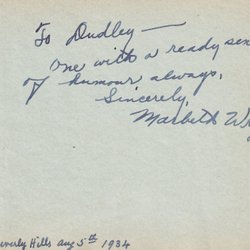 To Dudley —
One with a ready sen
of humour always,
Sincerely,
Marbeth W
Beverly Hills Aug 5th 1934